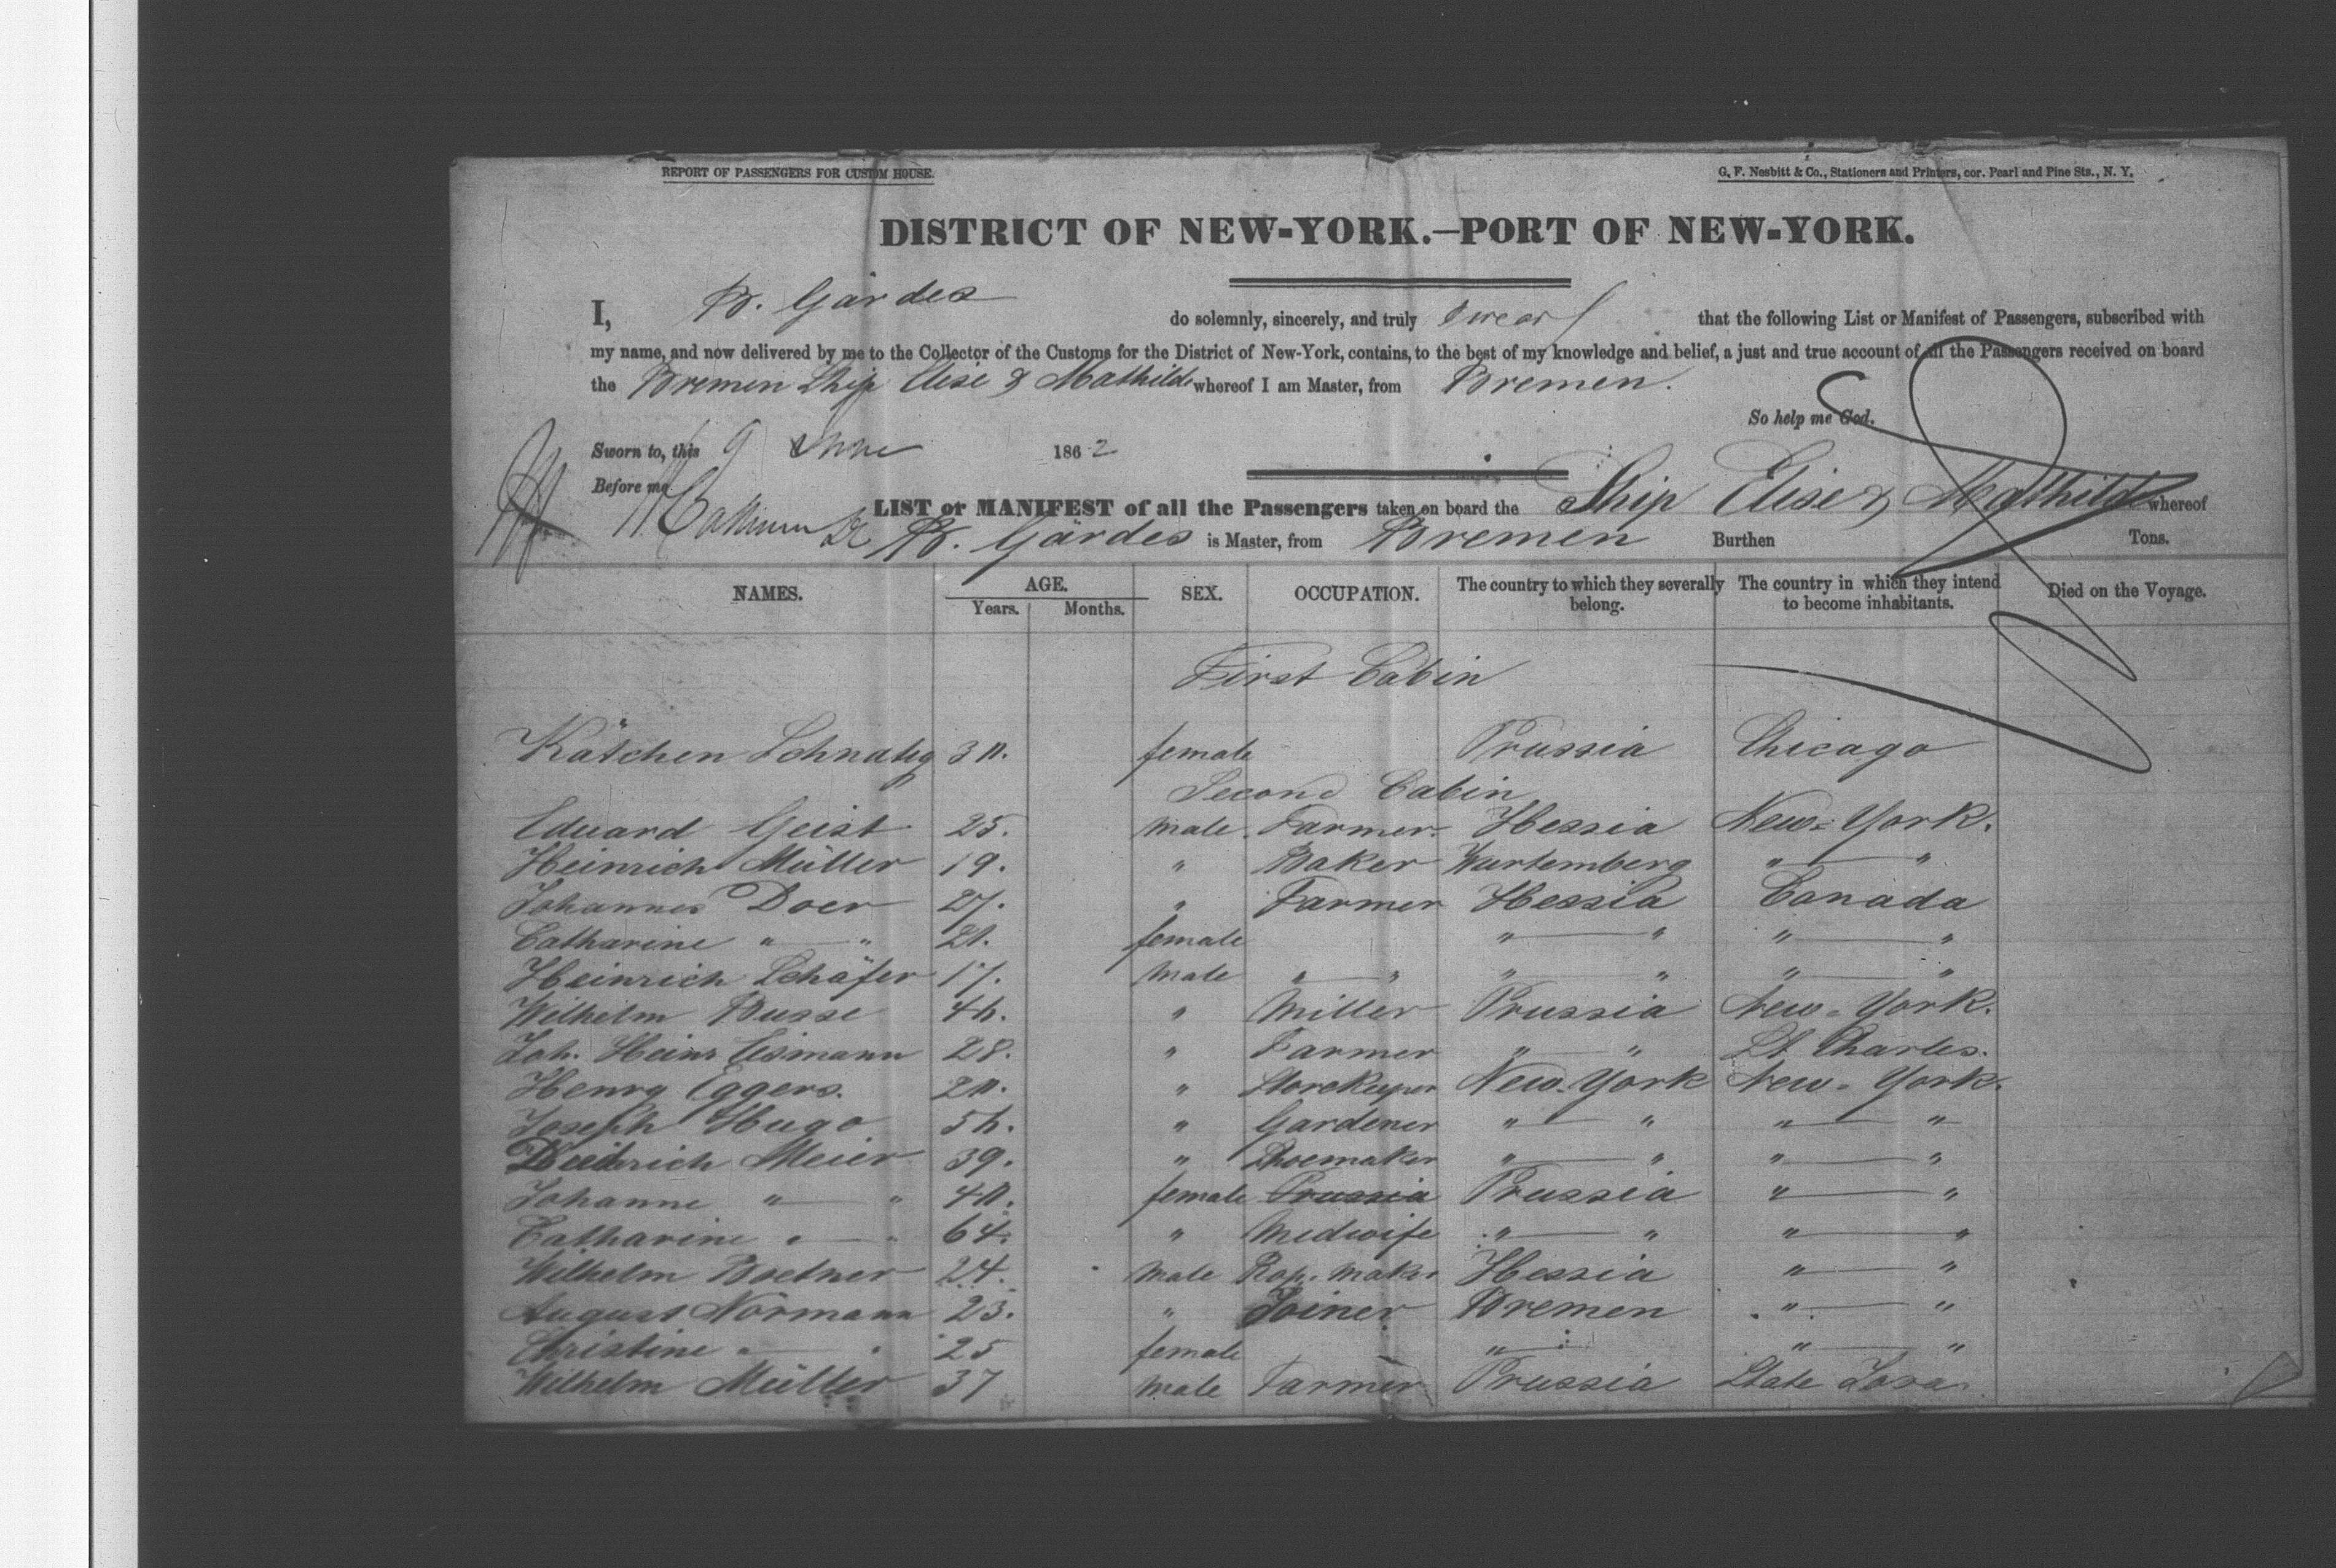 REPORT OF PASSENGERS FOR CUSTOM HOUSE.
G. F. Nesbitt & Co., Stationers and Printers, cor. Pearl and Pine Sts., N. Y.
DISTRICT OF NEW-YORK.—PORT OF NEW-YORK.
I, B. Gärdes do solemnly, sincerely, and truly swear that the following List or Manifest of Passengers, subscribed with
my name, and now delivered by me to the Collector of the Customs for the District of New-York, contains, to the best of my knowledge and belief, a just and true account of all the Passengers received on board
the Bremen Ship Elise & Mathilde whereof I am Master, from Bremen.
So help me God.
Sworn to, this 9 June 1862
Before me
LIST or MANIFEST of all the Passengers taken on board the Ship Elise & Mathilde whereof
B. Gärdes is Master, from Bremen Burthen Tons.
NAMES. AGE. Years. Months. SEX. OCCUPATION. The country to which they severally belong. The country in which they intend to become inhabitants. Died on the Voyage.
First Cabin
Kätchen 30. female Prussia Chicago
Second Cabin
Eduard Geist 25. male Farmer Hessia New-York.
Heinrich Müller 19. " Baker Wurtemberg " — "
Johannes Doer 27. " Farmer Hessia Canada
Catharine " — " 21. female " — " " — "
Heinrich Schäfer 17. male " — " " — " " — "
Wilhelm Busse 46. " Miller Prussia New-York.
Joh. Heinr Eismann 28. " Farmer " — " St Charles.
Henry Eggers. 20. " Storekeeper New-York New-York.
Joseph Hugo 56. " Gardener " — " " — "
Diedrich Meier 39. " Shoemaker " — " " — "
Johanne " — " 40. female Prussia Prussia " — "
Catharine " — " 64. " Midwife " — " " — "
Wilhelm 24. male maker Hessia " — "
August Normann 23. " Joiner Bremen " — "
Christine " — " 25 female " — " " — "
Wilhelm Müller 37 male Farmer Prussia State